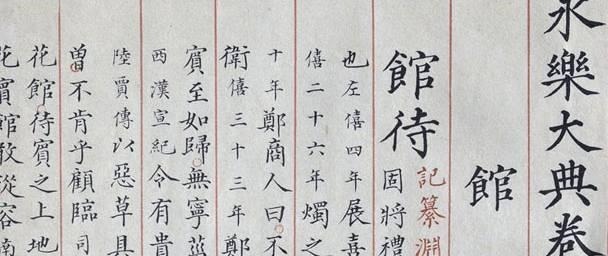 永樂大典卷
館
館待
記纂淵
固將禮
也左僖四年展喜
僖二十六年燭之
十年鄭商人曰不
衛僖三十三年鄭
賓至如歸無寧菑
西漢宣紀令有貴
陸賈傳以惡草具
曾不肯乎顧臨司
花館待賓之上地
花賓館敞從容南